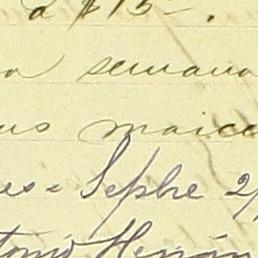 a $15-.
a semana
us maice
es= Sephe 2/
tonio Hernán